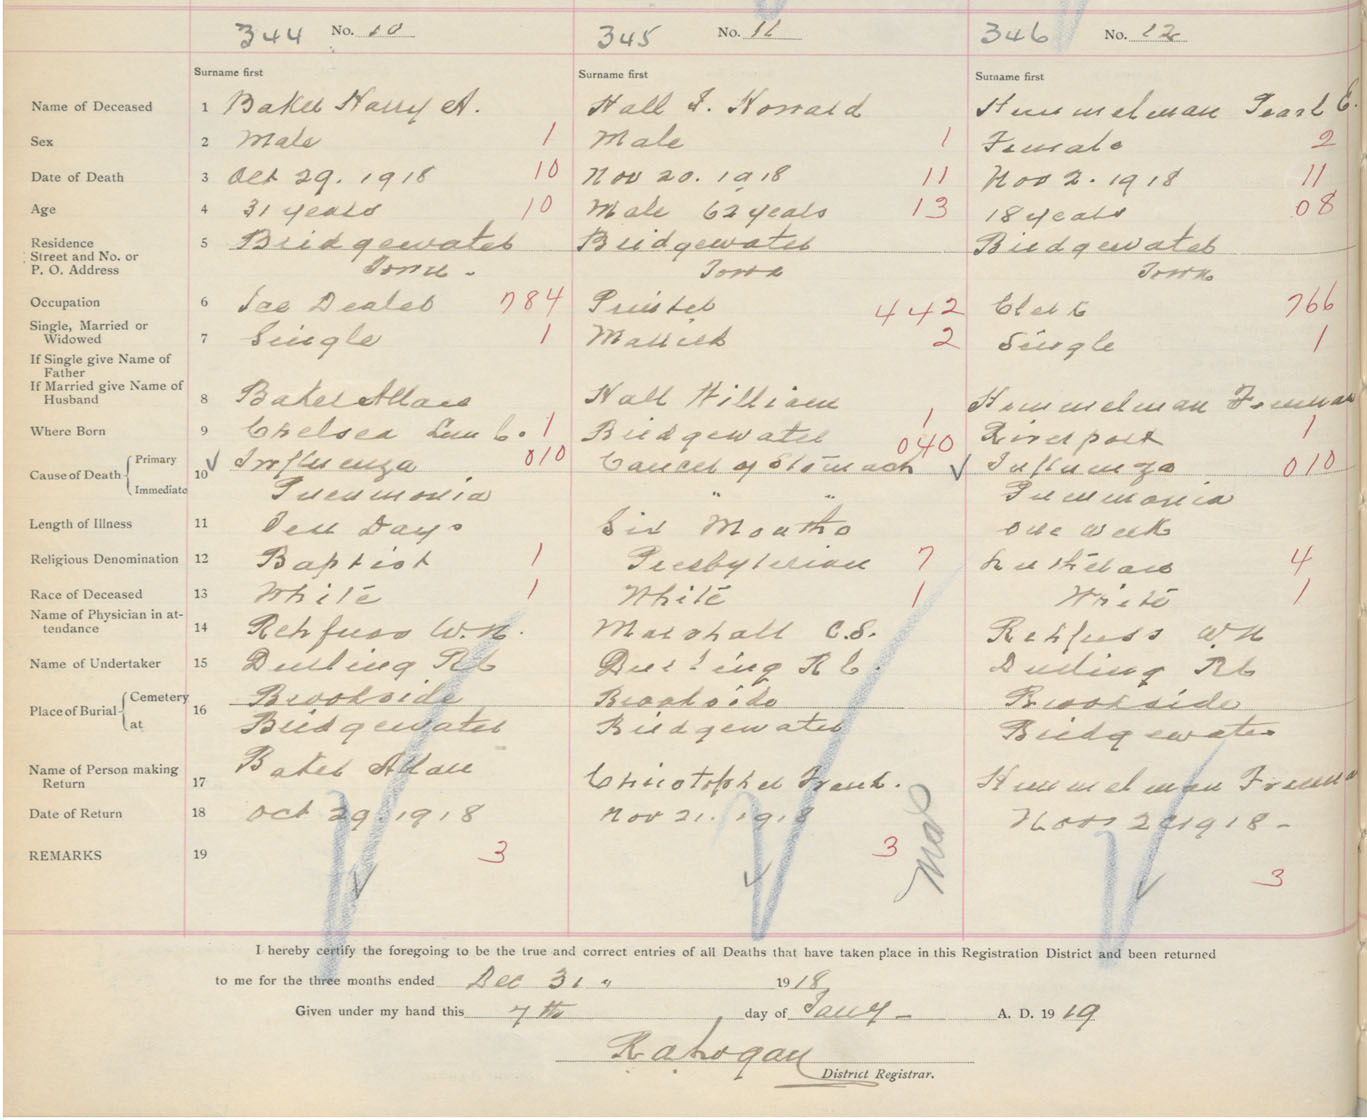 344 No. 10 345 No. 11 346 No. 12
Surname first Surname first Surname first
Name of Deceased 1 Baker Harry A. Hall J. Howard Hummelman Pearl E.
Sex 2 Male 1 Male 1 Female 2
Date of Death 3 Oct 29. 1918 10 Nov 20. 1918 11 Nov 2. 1918 11
Age 4 31 years 10 Male 62 years 13 18 years 08
Residence 5 Bridgewater Bridgewater Bridgewater
Street and No. or
P. O. Address Town - Town Town
Occupation 6 Ice Dealer 784 Printer 442 Clerk 766
Single, Married or
Widowed 7 Single 1 Married 2 Single 1
If Single give Name of
Father
If Married give Name of
Husband 8 Baker Allan Hall William Hummelman Freeman
Where Born 9 Chelsea Lun C. 1 Bridgewater 1 Riverport 1
Cause of Death Primary 10 Influenza 010 Cancer of Stomach 040 Influenza 010
Immediate Pneumonia " " Pneumonia
Length of Illness 11 Ten Days Six Months one week
Religious Denomination 12 Baptist 1 Presbyterian 7 Lutheran 4
Race of Deceased 13 White 1 White 1 White 1
Name of Physician in at-
tendance 14 Rehfuss W.N. Marshall C.S. Rehfuss WN
Name of Undertaker 15 Durling RC Durling R C. Durling RC
Place of Burial Cemetery 16 Brookside Brookside Brookside
at Bridgewater Bridgewater Bridgewater
Name of Person making
Return 17 Baker Allan Christopher Frank. Hummelman Freeman
Date of Return 18 Oct 29. 1918 Nov 21. 1918 Nov 2 1918 -
REMARKS 19 3 3 3
I hereby certify the foregoing to be the true and correct entries of all Deaths that have taken place in this Registration District and been returned
to me for the three months ended Dec 31 " 1918
Given under my hand this 7th day of Jany - A. D. 1919
District Registrar.